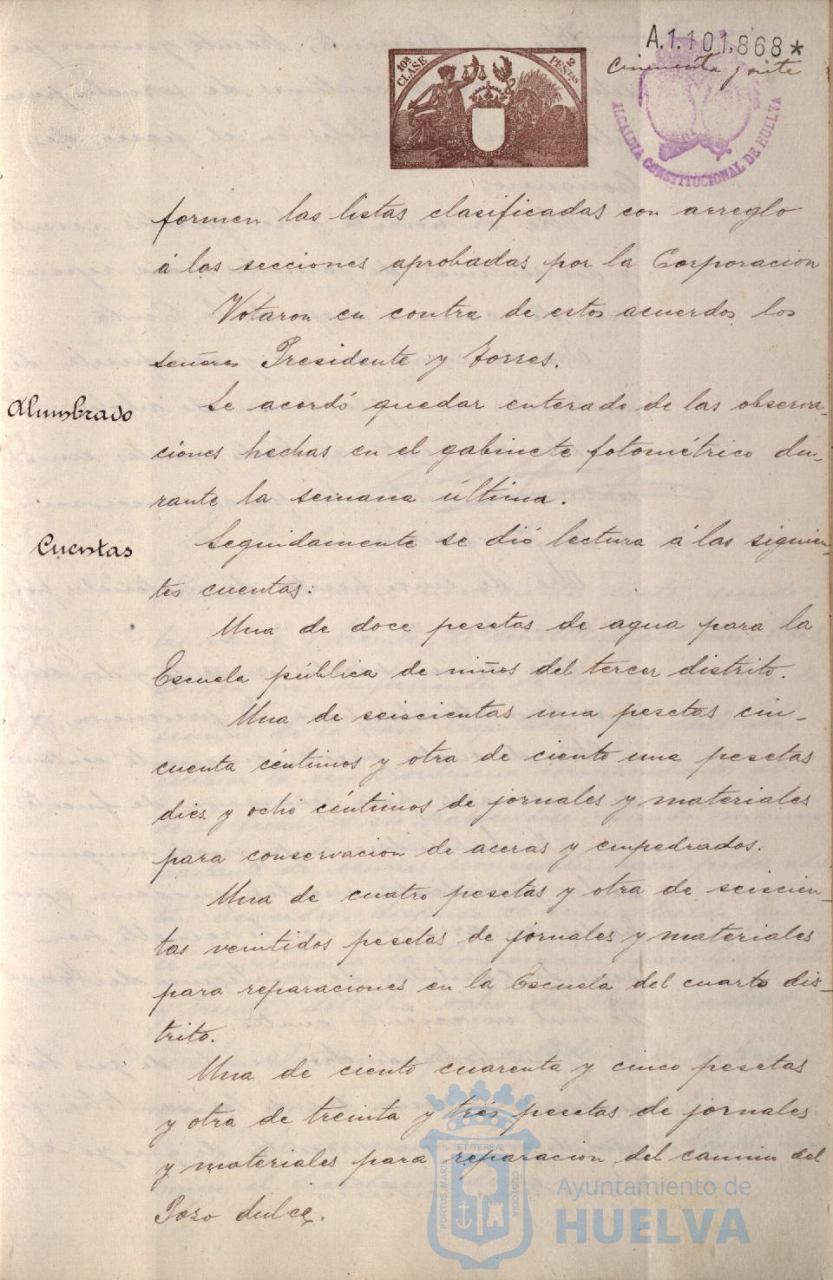 A.1.101.868*
10ª CLASE
2 PESTAS
Cincuenta y siete
ALCALDIA CONSTITUCIONAL DE HUELVA
formen las listas clasificadas con arreglo
á las secciones aprobadas por la Corporación
Votaron en contra de estos acuerdos los
señores Presidente y Torres.
Alumbrado
Se acordó quedar enterado de las observa-
ciones hechas en el gabinete fotométrico du-
rante la semana última.
Cuentas
Seguidamente se dió lectura á las siguien-
tes cuentas:
Una de doce pesetas de agua para la
Escuela pública de niños del tercer distrito.
Una de seiscientas una pesetas cin-
cuenta céntimos y otra de ciento una pesetas
diez y ocho céntimos de jornales y materiales
para conservacion de aceras y empedrados.
Una de cuatro pesetas y otra de seiscien-
tas veintidos pesetas de jornales y materiales
para reparaciones en la Escuela del cuarto dis-
trito.
Una de ciento cuarenta y cinco pesetas
y otra de treinta y tres pesetas de jornales
y materiales para reparacion del camino del
Pozo dulce.
PORTUS MARIS
ET TERRÆ
CUSTODIA
Ayuntamiento de
HUELVA